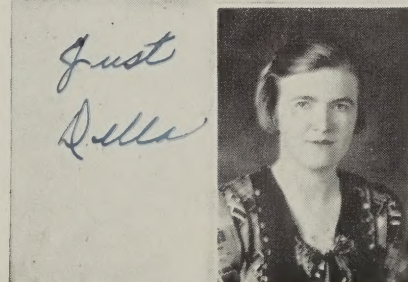 Just
Della